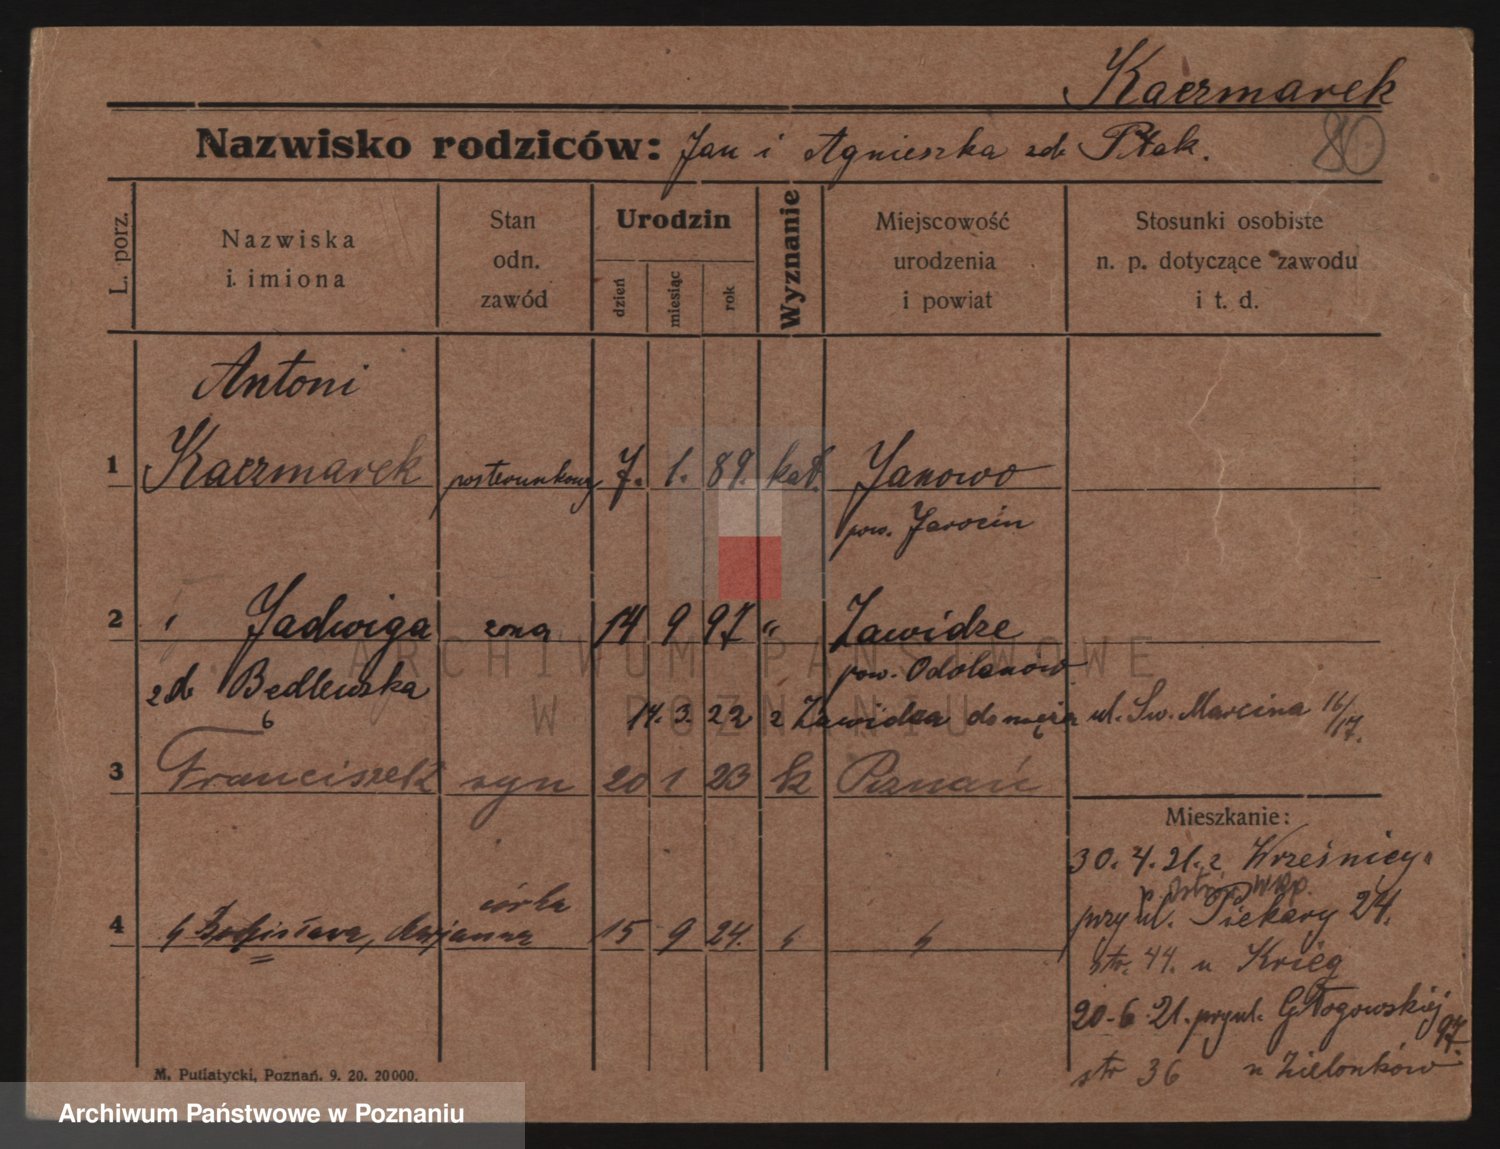 Kaczmarek
80
Nazwisko rodziców: Jan i Agnieszka zd. Ptak.
L. porz.
Nazwiska
i imiona
Stan
odn.
zawód
Urodzin
dzień
miesiąc
rok
Wyznanie
Miejscowość
urodzenia
i powiat
Stosunki osobiste
n. p. dotyczące zawodu
i t. d.
Antoni
1 Kaczmarek posterunkowy 7. 1. 89. kat. Janowo
pow. Jarocin
2 " Jadwiga żona 14 9 97 " Zawidze
zd. Będlewska pow. Odolanów
14. 3. 22 z Zawidza do męża ul. Św. Marcina 16/17.
3 Franciszek syn 20 1 23 k Poznań
Mieszkanie:
30. 4. 21. z Wrześnicy
p. Ostrów Wkp.
córka
4 Marjanna 15 9 24.
przy ul. Piekary 24.
str. 44. u Krieg
20. 6. 21. przy ul. Głogowskiej 97.
str 36 u Zielonków
M. Putiatycki, Poznań. 9. 20. 20000.
ARCHIWUM PAŃSTWOWE
W POZNANIU
Archiwum Państwowe w Poznaniu